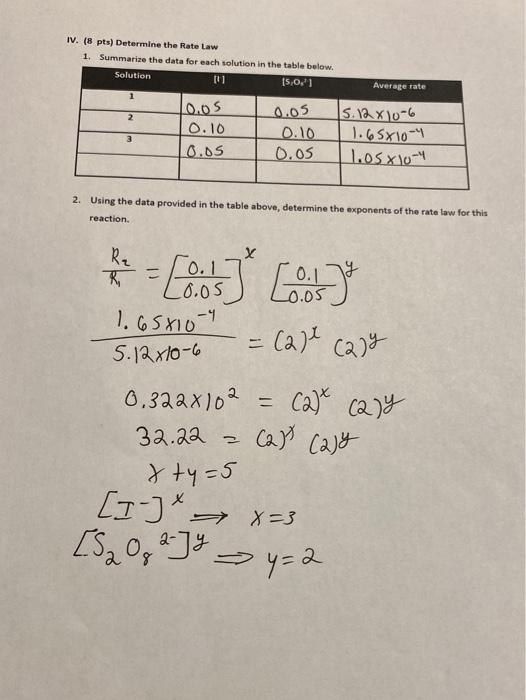 IV. (8 pts) Determine the Rate Law
1. Summarize the data for each solution in the table below.
Solution [I] [S₂O₈²⁻] Average rate
1 0.05 0.05 5.12x10-6
2 0.10 0.10 1.65x10-4
3 0.05 0.05 1.05x10-4
2. Using the data provided in the table above, determine the exponents of the rate law for this
reaction.
R₂/R₁ = [0.1/0.05]ˣ [0.1/0.05]ʸ
1.65x10⁻⁴/5.12x10-6 = (2)ˣ (2)ʸ
0.322x10² = (2)ˣ (2)ʸ
32.22 = (2)ˣ (2)ʸ
x+y=5
[I⁻]ˣ ⇒ x=3
[S₂O₈²⁻]ʸ ⇒ y=2